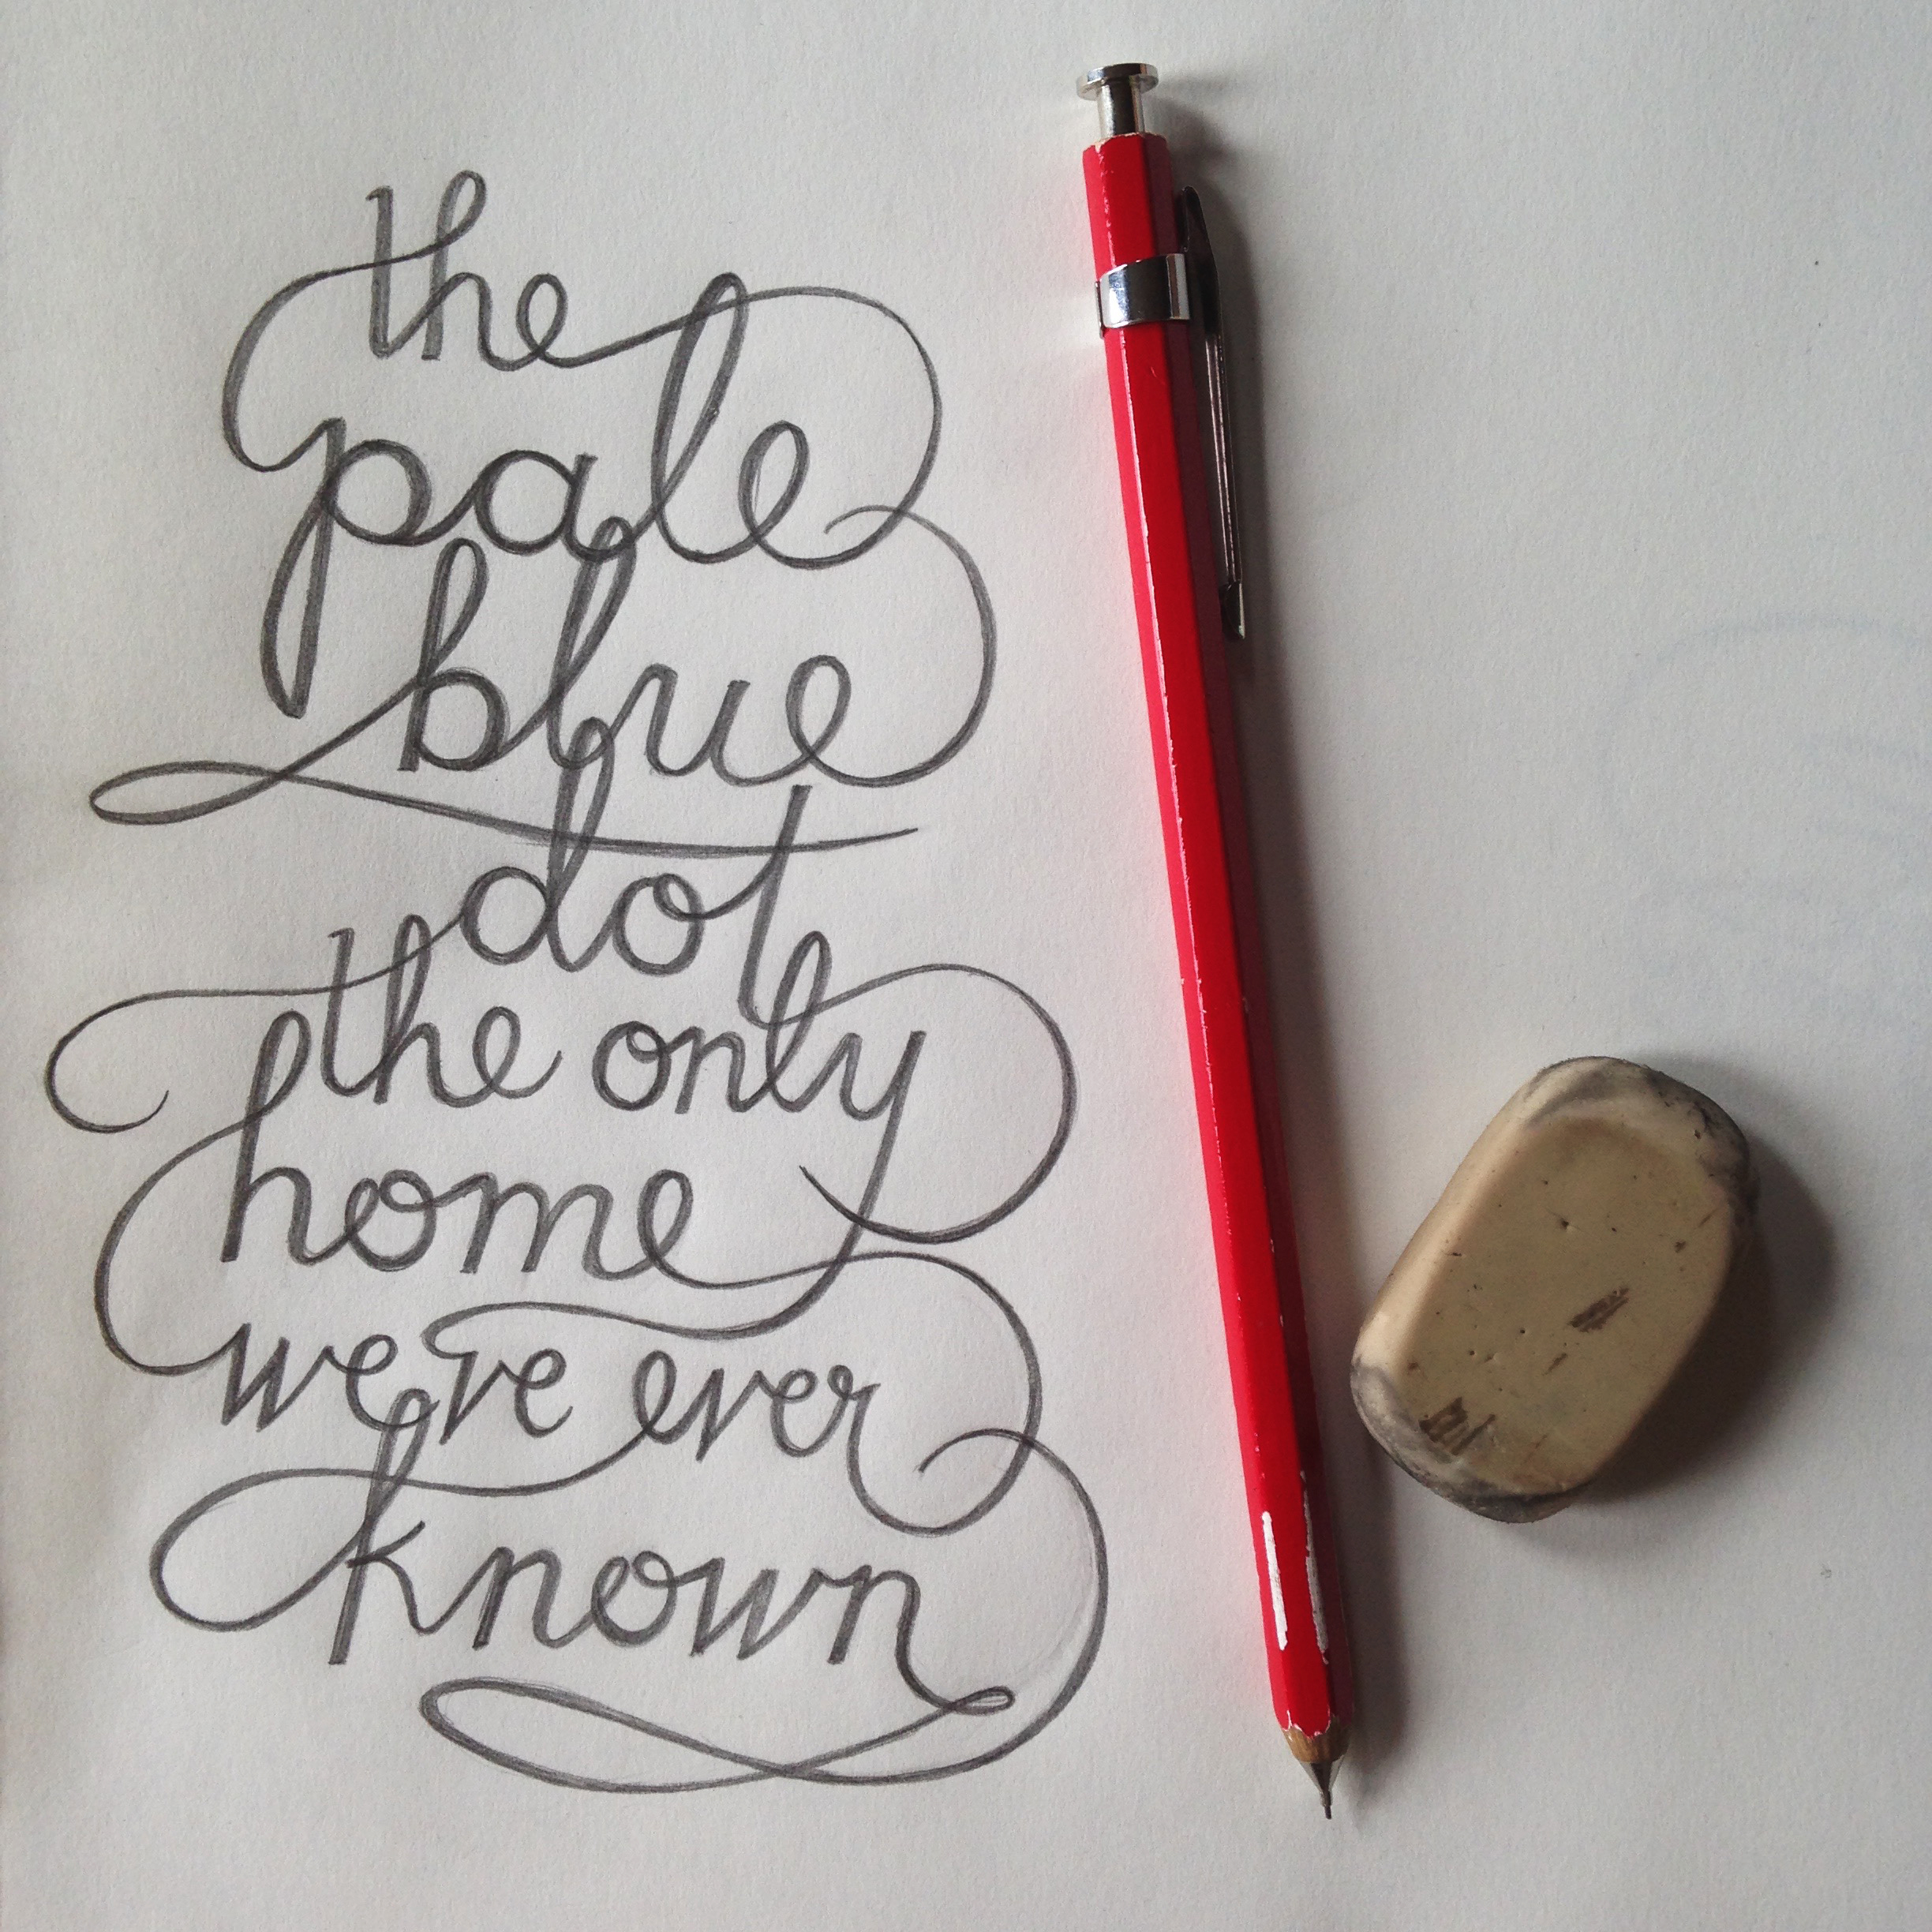 the
pale
blue
dot
the only
home
we've ever
known